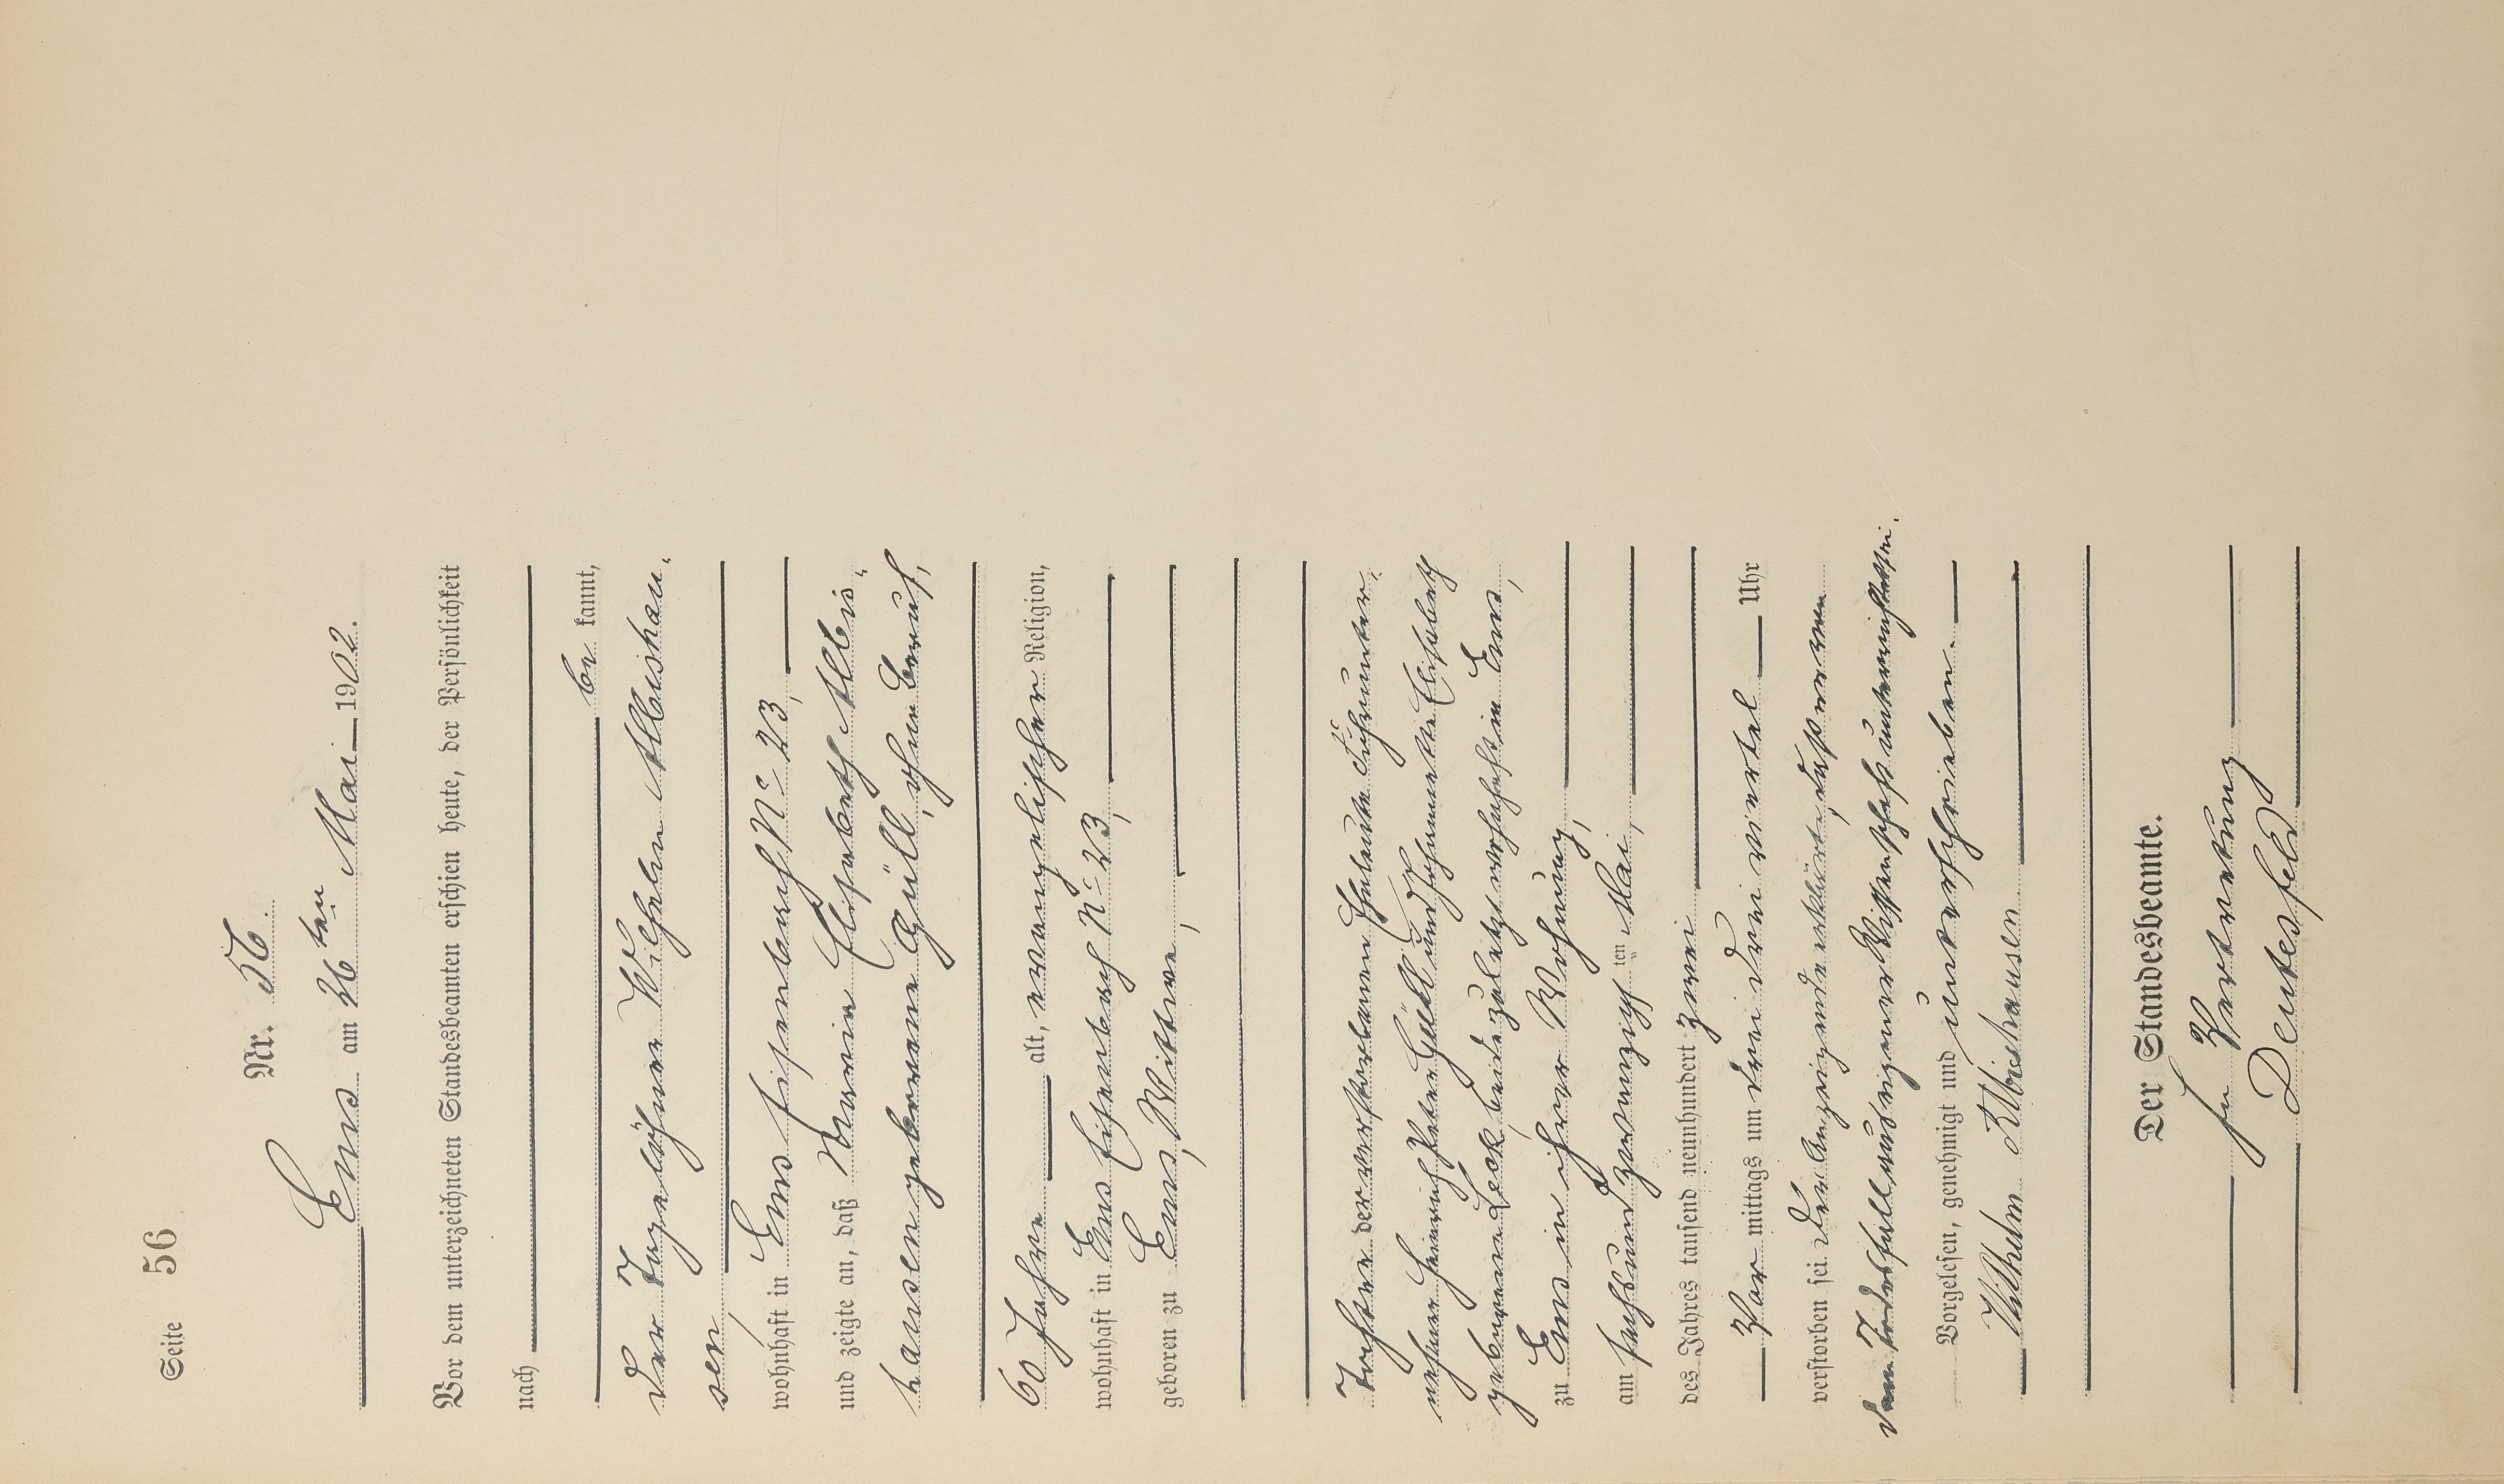 Seite 56
Nr. 56.
Ems am 26ten Mai 1902.
Vor dem unterzeichneten Standesbeamten erschien heute, der Persönlichkeit
nach
be kannt,
der Tagelöhner Wilhelm Albishau-
sen,
wohnhaft in Ems Eisenbach No 23,
und zeigte an, daß Maria Elisabeth Albis-
hausen geborene Güll, ohne Beruf,
60 Jahre alt, evangelischer Religion,
wohnhaft in Ems Eisenbach No 23,
geboren zu Ems, Witwe,
Tochter der verstorbenen Eheleute Fuhrunter-
nehmer Heinrich Peter Güll und Johannette Elisabeth
geborene Leck, beide zuletzt wohnhaft in Ems,
zu Ems in ihrer Wohnung,
am sechsundzwanzigsten Mai,
des Jahres tausend neunhundert zwei
Vor mittags um drei drei viertel Uhr
verstorben sei. Der Anzeigende erklärte, daß er von
dem Todesfall aus eigener Wissenschaft unterrichtet sei.
Vorgelesen, genehmigt und unterschrieben.
Wilhelm Albishausen
Der Standesbeamte.
In Vertretung